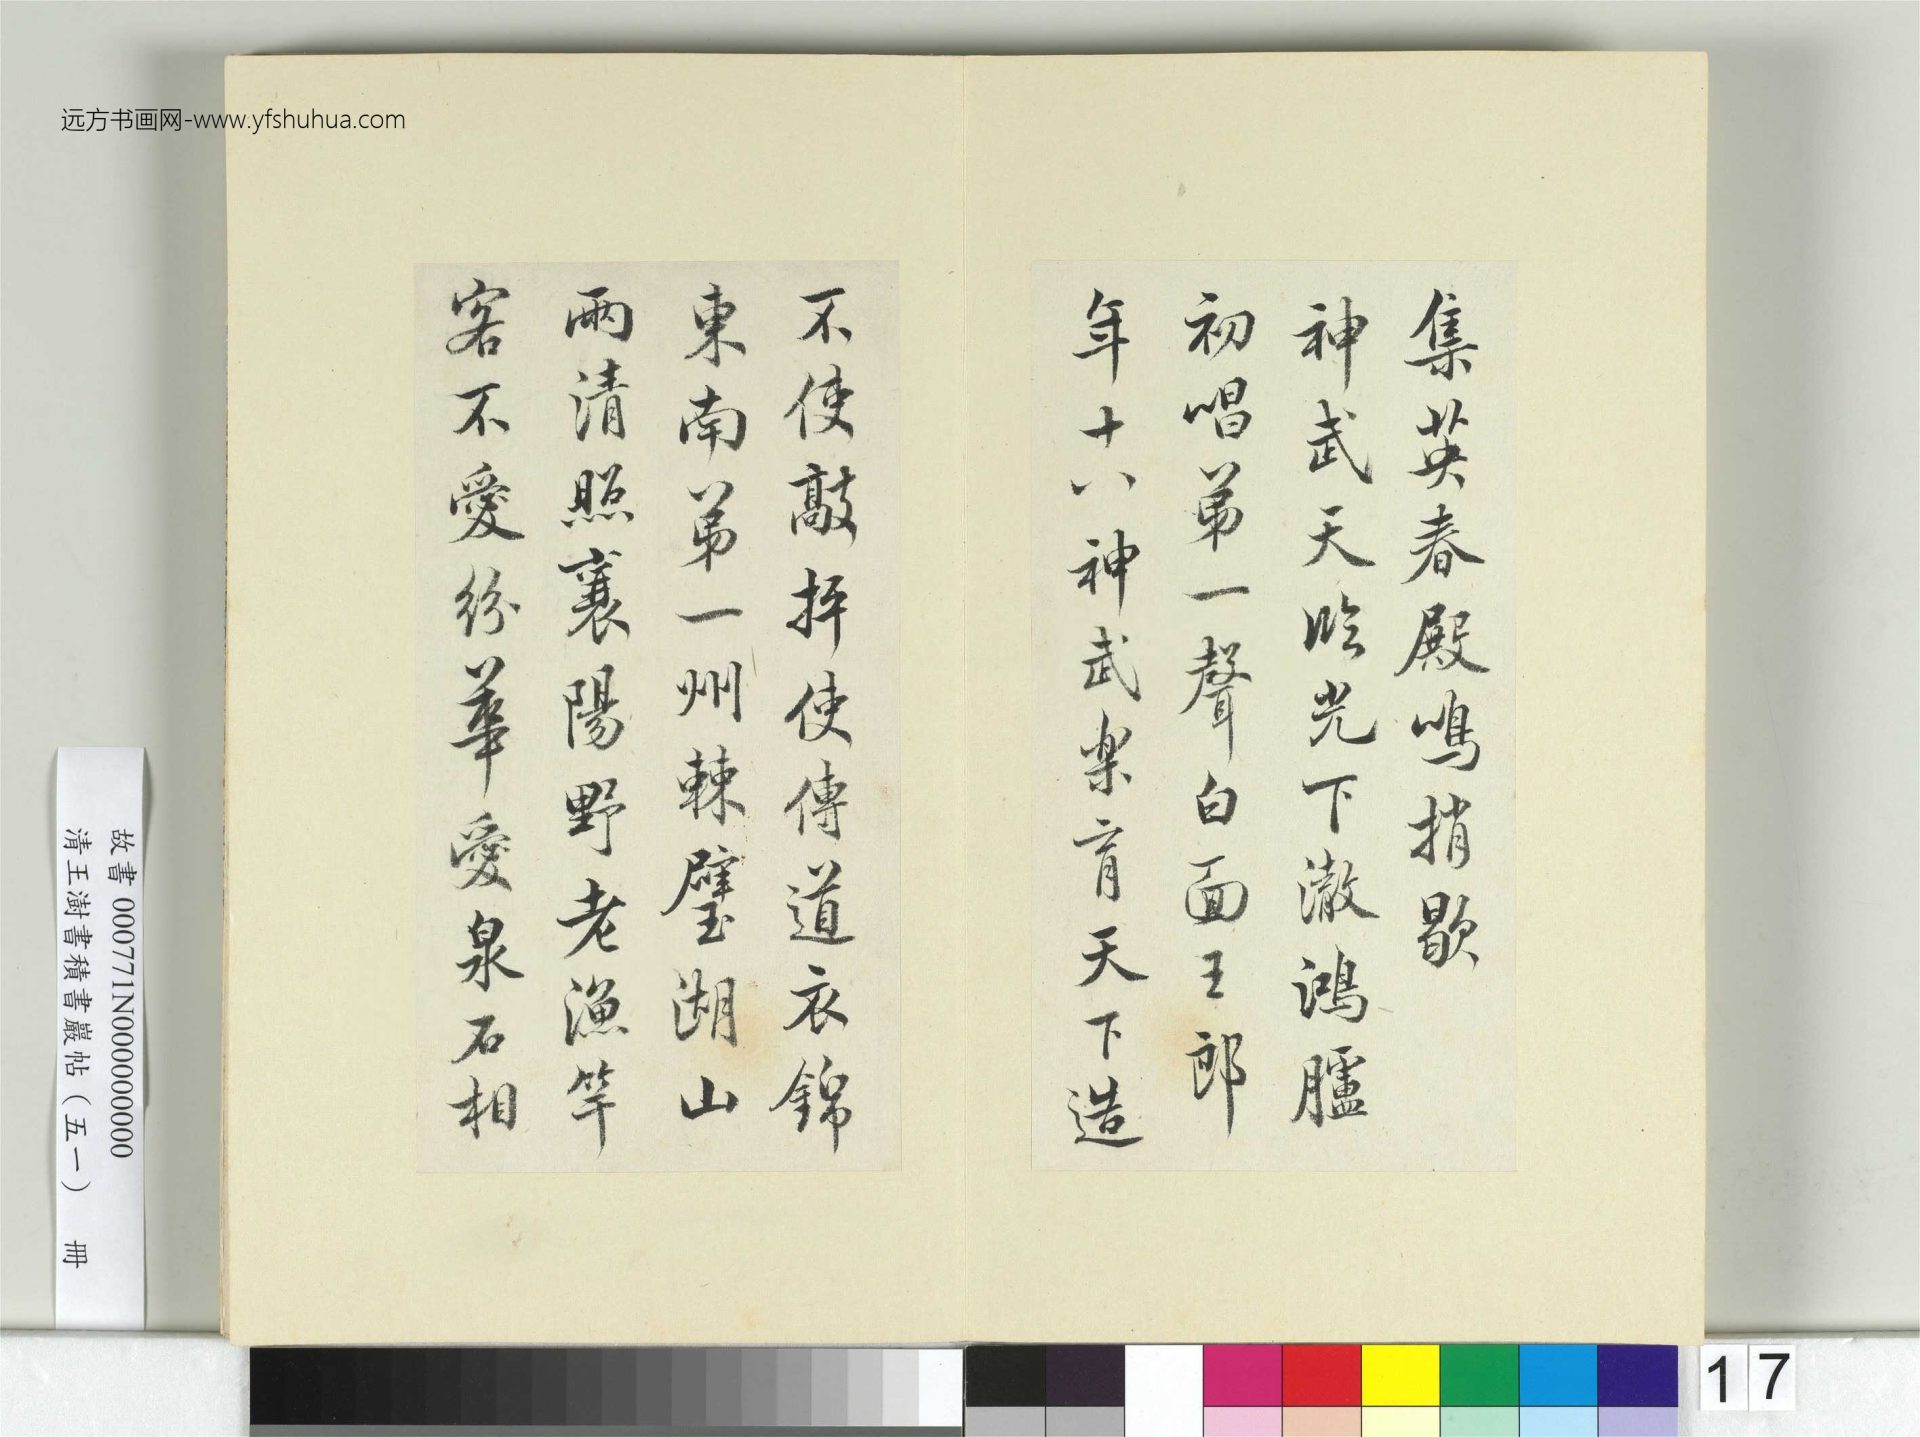 远方书画网-www.yfshuhua.com
集英春殿鳴捎歇
神武天臨光下澈鴻臚
初唱第一聲白面王郎
年十八神武樂育天下造
不使敲抨使傳道衣錦
東南第一州棘壁湖山
兩清照襄陽野老漁竿
客不愛紛華愛泉石相
故書 000771N000000000
清王澍書積書巖帖（五一） 冊
17